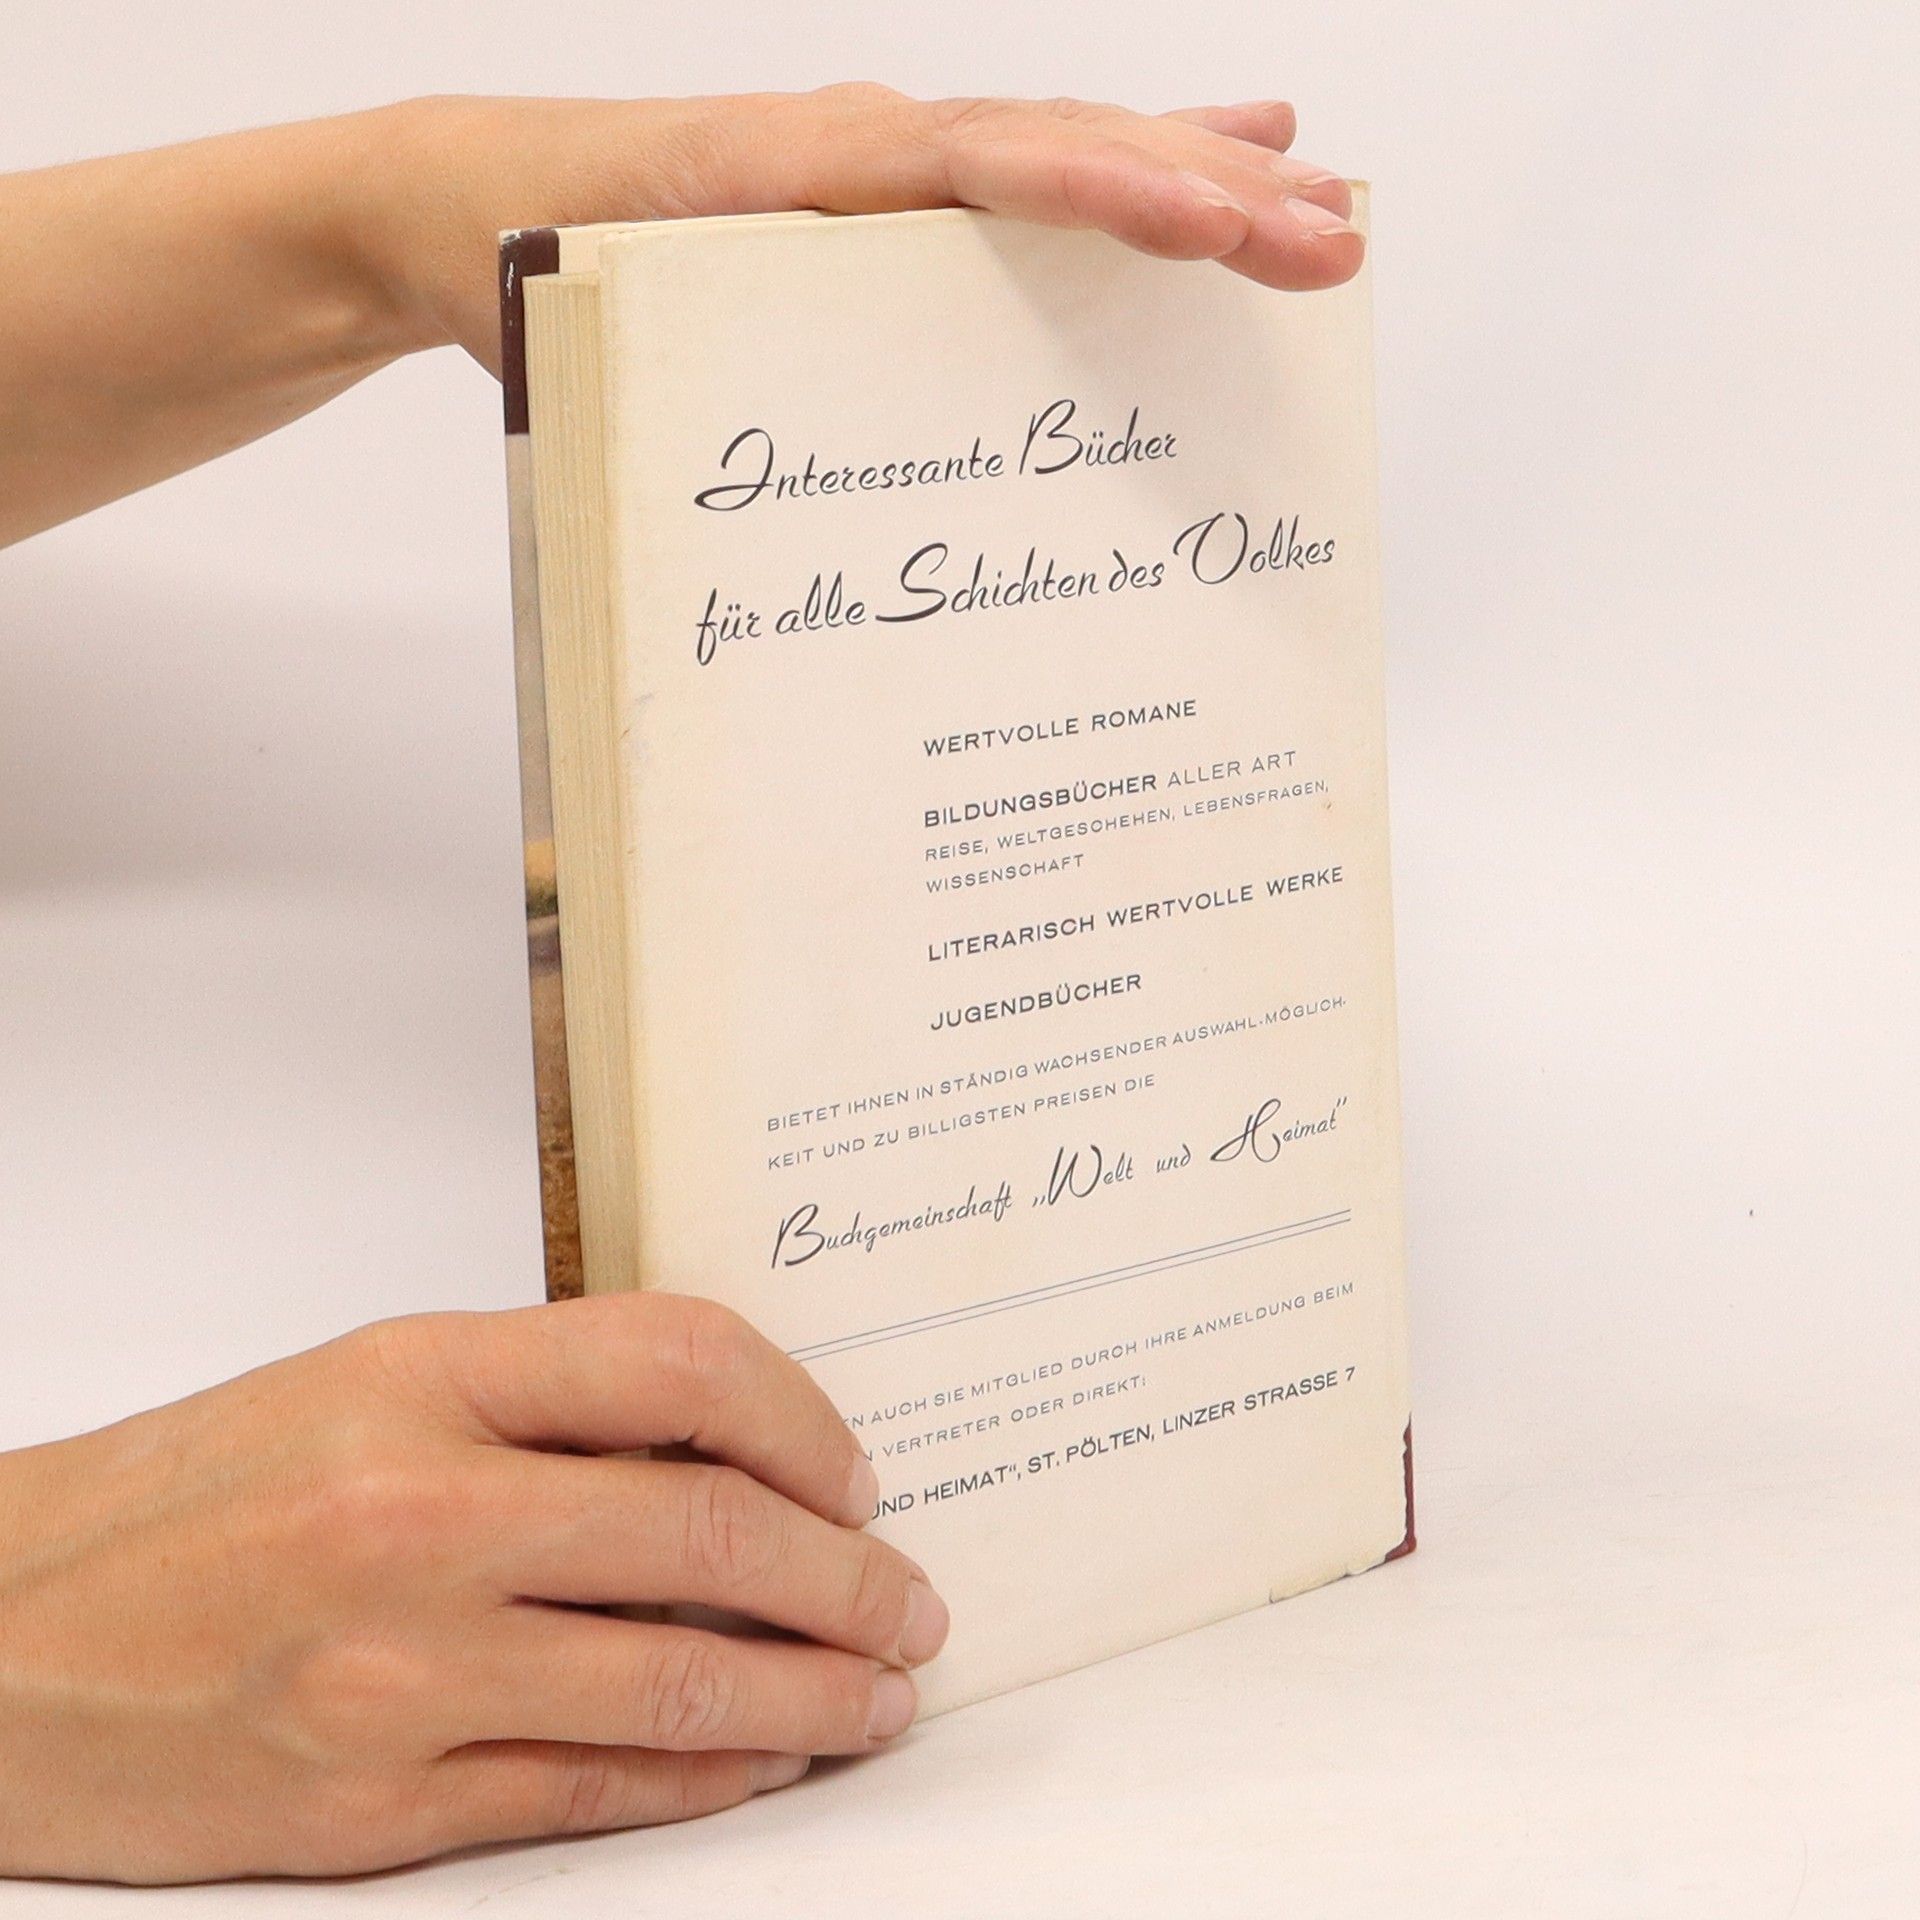 Interessante Bücher
für alle Schichten des Volkes
WERTVOLLE ROMANE
BILDUNGSBÜCHER ALLER ART
REISE, WELTGESCHEHEN, LEBENSFRAGEN,
WISSENSCHAFT
LITERARISCH WERTVOLLE WERKE
JUGENDBÜCHER
BIETET IHNEN IN STÄNDIG WACHSENDER AUSWAHL-MÖGLICH-
KEIT UND ZU BILLIGSTEN PREISEN DIE
Buchgemeinschaft „Welt und Heimat"
AUCH SIE MITGLIED DURCH IHRE ANMELDUNG BEIM
VERTRETER ODER DIREKT:
UND HEIMAT“, ST. PÖLTEN, LINZER STRASSE 7